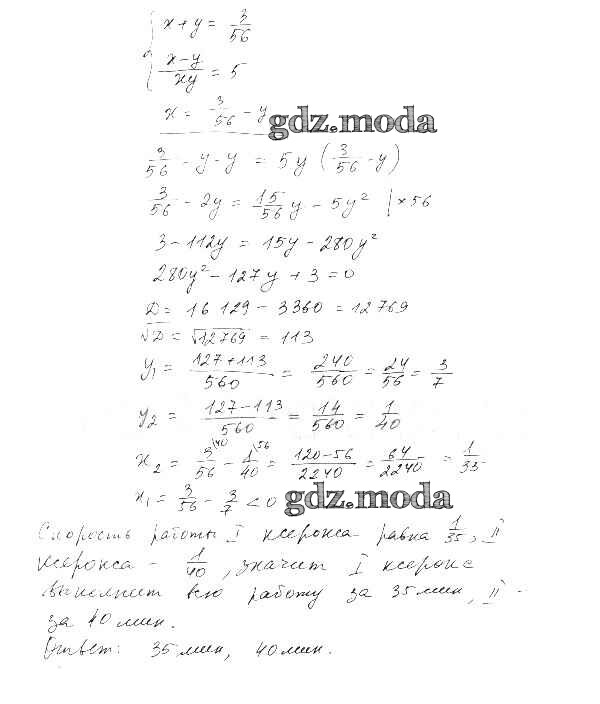 x + y = 3/56
(x-y)/xy = 5
x = 3/56 - y
gdz.moda
3/56 - y - y = 5y (3/56 - y)
3/56 - 2y = 15/56 y - 5y² | ×56
3 - 112y = 15y - 280y²
280y² - 127y + 3 = 0
D = 16 129 - 3360 = 12769
√D = √12769 = 113
y₁ = (127+113)/560 = 240/560 = 24/56 = 3/7
y₂ = (127-113)/560 = 14/560 = 1/40
x₂ = 3/56 \40 - 1/40 \56 = (120-56)/2240 = 64/2240 = 1/35
x₁ = 3/56 - 3/7 < 0
gdz.moda
Скорость работы I ксерокса равна 1/35, II
ксерокса - 1/40, значит I ксерокс
выполнит всю работу за 35 мин, II -
за 40 мин.
Ответ: 35 мин, 40 мин.